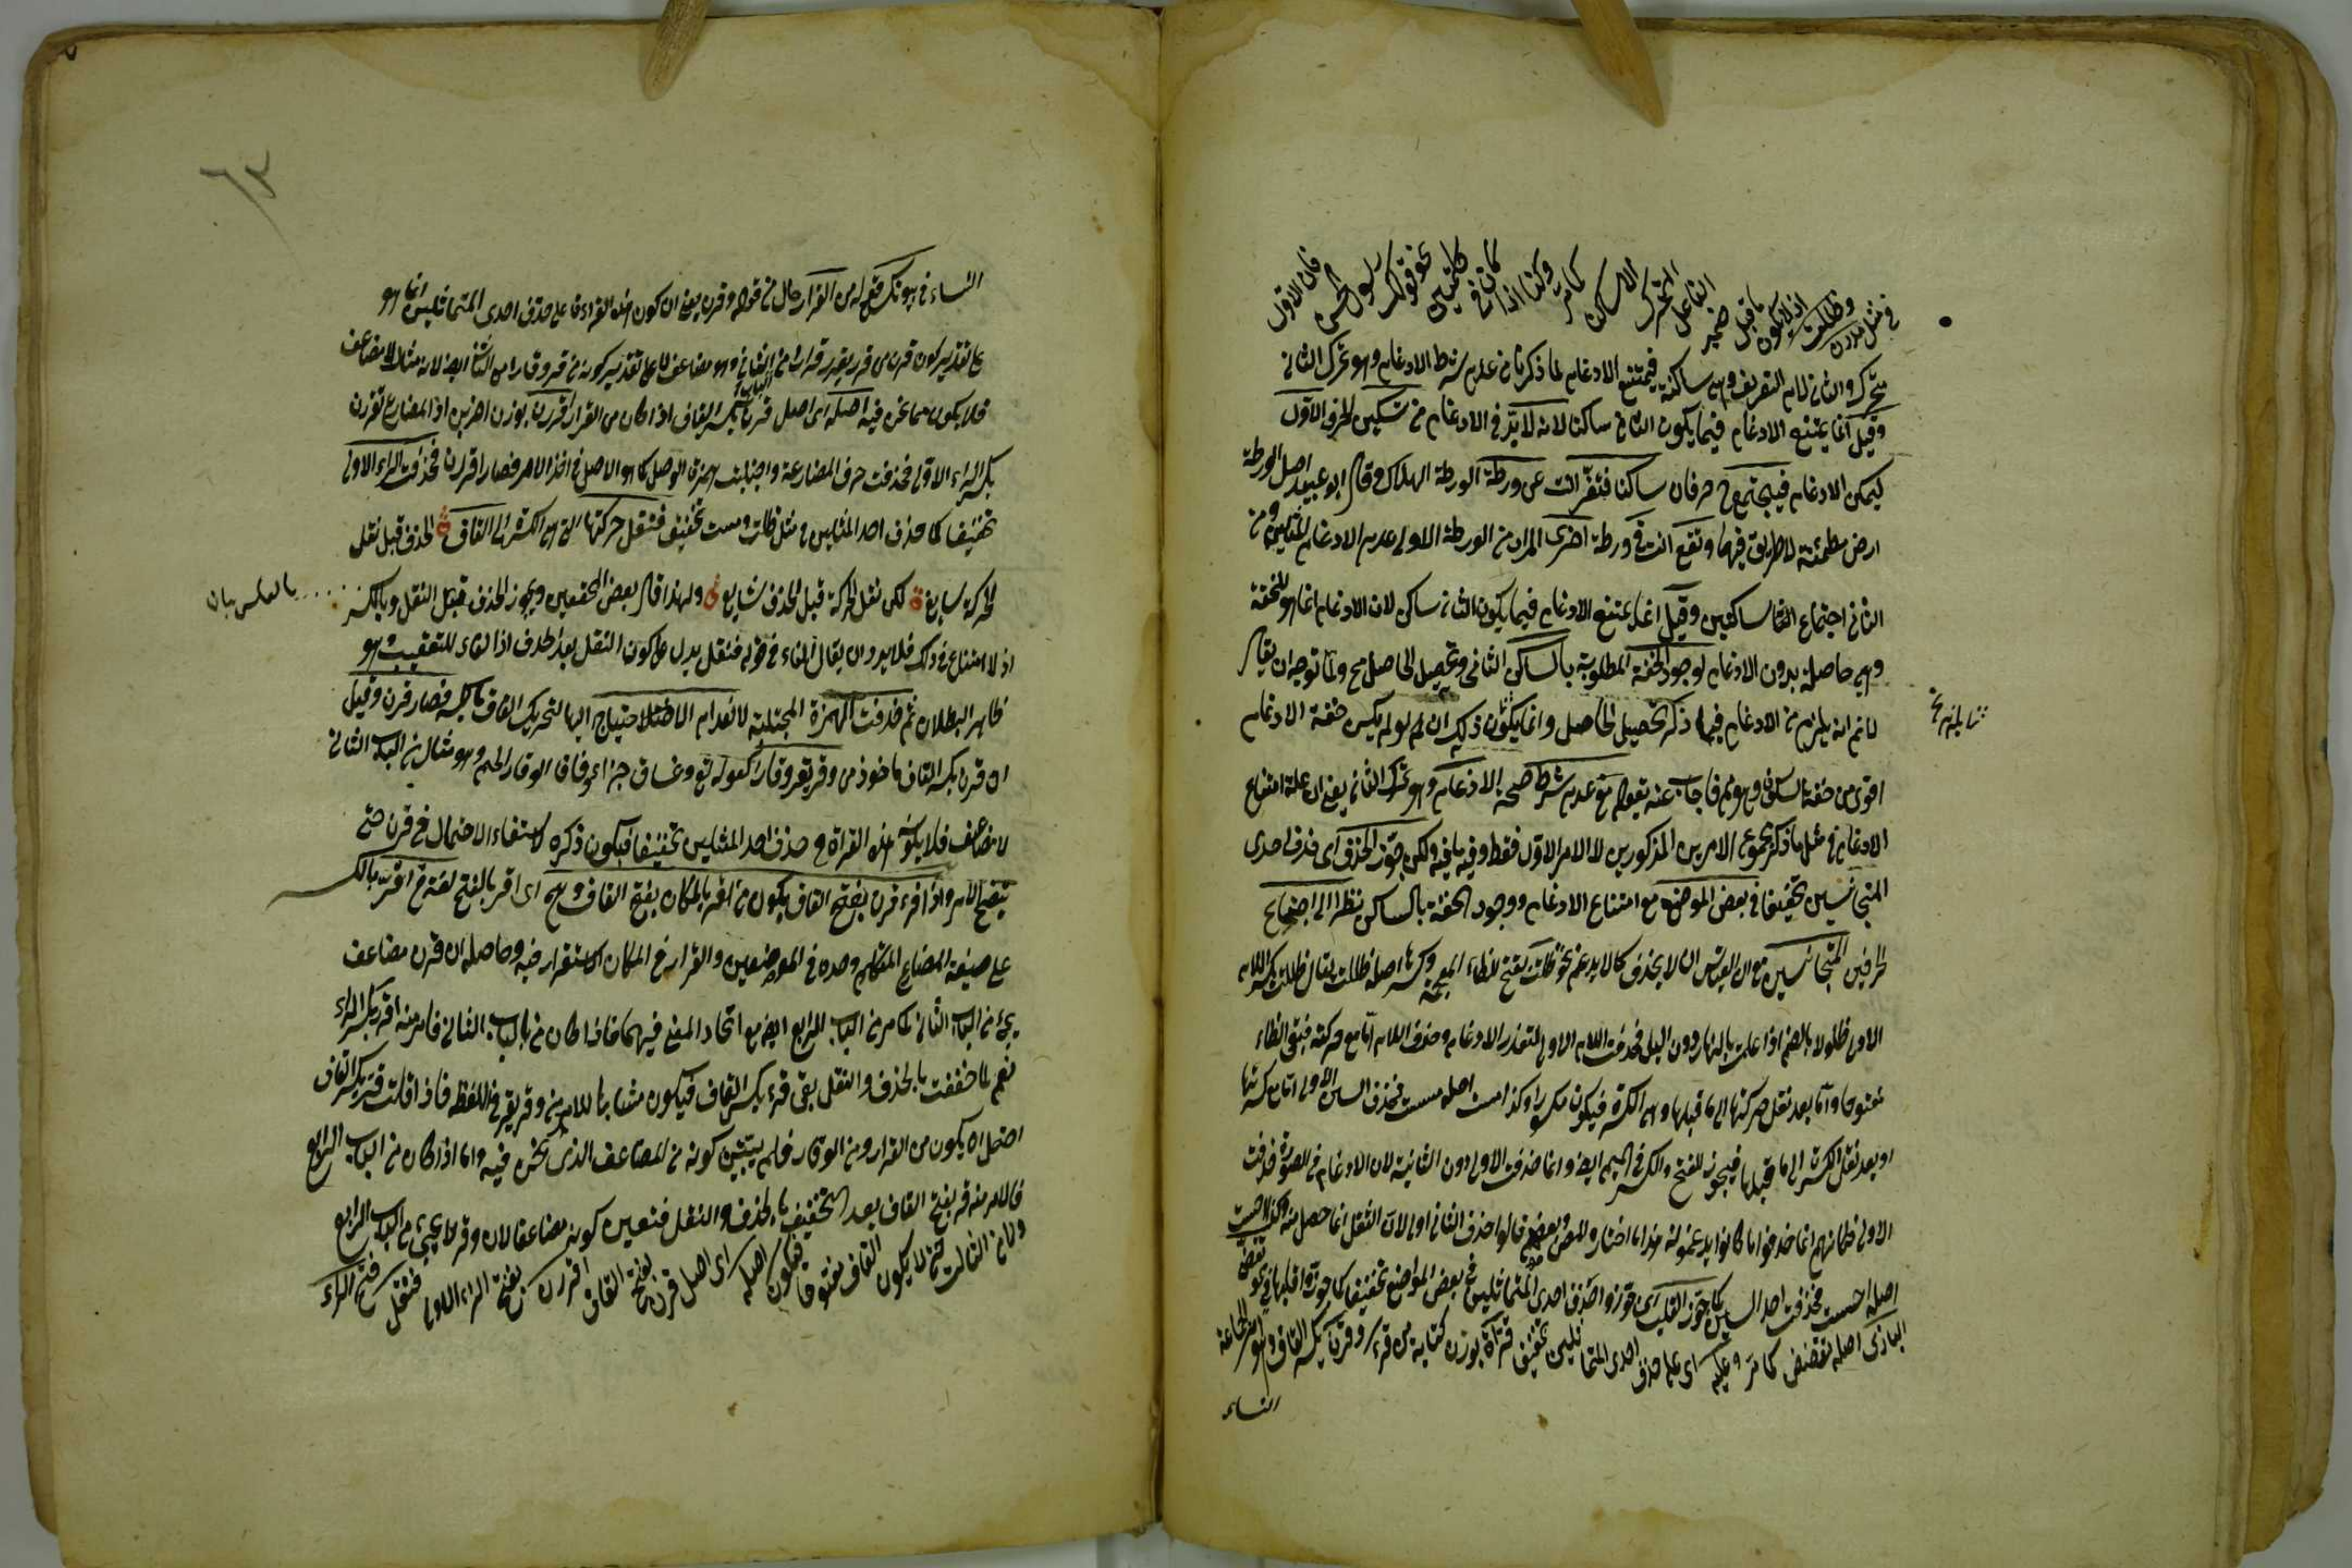 في مثل مددن وظللت اذ لا يكون ما قبل ضمير الفاعل المتحرك الا ساكن كما مر وكذا اذا كان في كلمتين نحو قولك رسول الحسن فان الاول
متحرك والثاني لام التعريف وهي ساكنة فيمتنع الادغام لما ذكرنا من عدم شرط الادغام وهو تحرك الثاني
وقيل انما يمتنع الادغام فيما يكون الثاني ساكنا لانه لا بد في الادغام من تسكين الحرف الاول
ليمكن الادغام فيجتمع ح حرفان ساكنا فتفر انت عن ورطة الورطة الهلاك وقال ابو عبيد اصل الورطة
ارض مطمئنة لا طريق فيها وتقع انت في ورطة اخرى المراد من الورطة الاولى عدم الادغام للمثلين ومن
الثاني اجتماع الساكنين وقيل انما يمتنع الادغام فيما يكون الثاني ساكن لان الادغام انما هو للخفة
وهي حاصلة بدون الادغام لوجود الخفة المطلوبة بالساكن الثاني وتحصيل الحاصل مح ولما توجه ان يقال
لا نم انه يلزم من الادغام فيما ذكر تحصيل الحاصل وانما يكون ذلك ان لو لم يكن خفة الادغام
اقوى من خفة السكون وهو مم فاجاب عنه بقوله مع عدم شرط صحة الادغام وهو تحرك الثاني يعني ان علة امتناع
الادغام في مثل ما ذكر مجموع الامرين المذكورين لا الامر الاول فقط وفيه ما فيه ولكن جوز الحذف اى حذف احدى
المتجانسين تخفيفا في بعض المواضع مع امتناع الادغام ووجود الخفة بالساكن نظرا الى اجتماع
الحرفين المتجانسين مع ان القياس ان لا يحذف كما لا يدغم نحو ظلت بفتح الظاء المعجمة وكسرها اصله ظللت يقال ظللت بكسر اللام
الاولى ظلولا بالضم اذا عملت بالنهار دون الليل فحذفت اللام الاولى لتعذر الادغام وحذف اللام اما مع حركته فبقى الظاء
مفتوحا واما بعد نقل حركتها الى ما قبلها وهي الكسرة فيكون مكسورا وكذا مست اصله مسست فحذف السين الاولى اما مع كسرتها
او بعد نقل الكسرة الى ما قبلها فيجوز الفتح والكسر في الميم ايضا وانما حذفت الاولى دون الثانية لان الادغام في الصورة حذفت
الاولى فكانهم انما حذفوا ما كانوا يدغمونه هذا ما اختاره المص وبعضهم قالوا حذف الثاني اولى لان الثقل انما حصل منه وكذا احست
اصله احسست فحذفت احد السينين كما جوز القلب اى جوزوا حذف احدى المتماثلين في بعض المواضع تخفيفا كما جوزوا قلبها في نحو تقضى
البازى اصله تقضض كما مر وعليه اى على حذف احدى المتماثلين تخفيف قراءة بوزن كتابة من قرء وقرن بكسر القاف وهو امر لجماعة
النساء
النساء في بيوتكن من القرار حال من قوله وقرن يعنى ان كون هذه القراءة على حذف احدى المتماثلين انما هو
على تقدير كون قرن من قر يقر قرارا من الثاني وهو مضاعف لا على تقدير كونه من وقر وقارا من الثاني ايضا لانه مثال لا مضاعف
فلا يكون مما نحن فيه اصله اى اصل قرن بكسر القاف اذا كان من القرار اقررن بوزن اضربن اذ المضارع تقررن
بكسر الراء الاولى فحذفت حرف المضارعة واجتلبت همزة الوصل كما هو الاصل في اخذ الامر فصار اقررن فحذفت الراء الاولى
تخفيفا كما حذف احد المثلين في مثل ظلت ومست تخفيف فنقل حركتها التي هي الكسرة الى القاف الحذف قبل نقل
الحركة سايغة لكن نقل الحركة قبل الحذف شايع ولهذا قال بعض المحققين ويجوز الحذف قبل النقل وبالعكس
بالعكس بيان
اذ لا امتناع في ذلك فلا يرد ان يقال الفاء في قوله فنقل يدل على كون النقل بعد الحذف اذ الفاء للتعقيب وهو
ظاهر البطلان ثم حذفت الهمزة المجتلبة لانعدام الاحتياج اليها لتحريك القاف بالكسر فصار قرن وقيل
ان قرن بكسر القاف ماخوذ من وقر يقر وقارا كقوله تع وغساق جزاء وفاقا الوقار الحلم وهو مثال من الباب الثاني
لا مضاعف فلا يكون هذه القراءة من حذف احد المثلين تخفيفا فيكون ذكره لاستيفاء الاحتمال في قرن حتى
يتضح الامر واذا قرء قرن بفتح القاف يكون من اقر بالمكان بفتح القاف وهي اى اقر بالفتح لغة في اقر بالكسر
على صيغة المضارع المتكلم وحده في الموضعين والقرار في المكان الاستقرار فيه وحاصله ان قرن مضاعف
يجيء من الباب الثاني كما مر من الباب الرابع ايضا مع اتحاد المعنى فيهما فاذا كان من الباب الثاني فامر منه اقرر بكسر الراء
نعم لما خففت بالحذف والنقل بقى قر بكسر القاف فيكون مشابها للامر من وقر يقر في اللفظ فاذا قلت قر بكسر القاف
احتمل ان يكون من القرار ومن الوقار فلم يتبين كونه من المضاعف الذى نحن فيه واما اذا كان من الباب الرابع
فالامر منه قر بفتح القاف بعد التخفيف بالحذف والنقل فتعين كونه مضاعفا لان وقر لا يجيء من الباب الرابع
ولا من الثالث حتى لا يكون القاف مفتوحا فيكون اصله اى اصل قرن بفتح القاف اقررن بفتح الراء الاولى فنقل فتح الراء